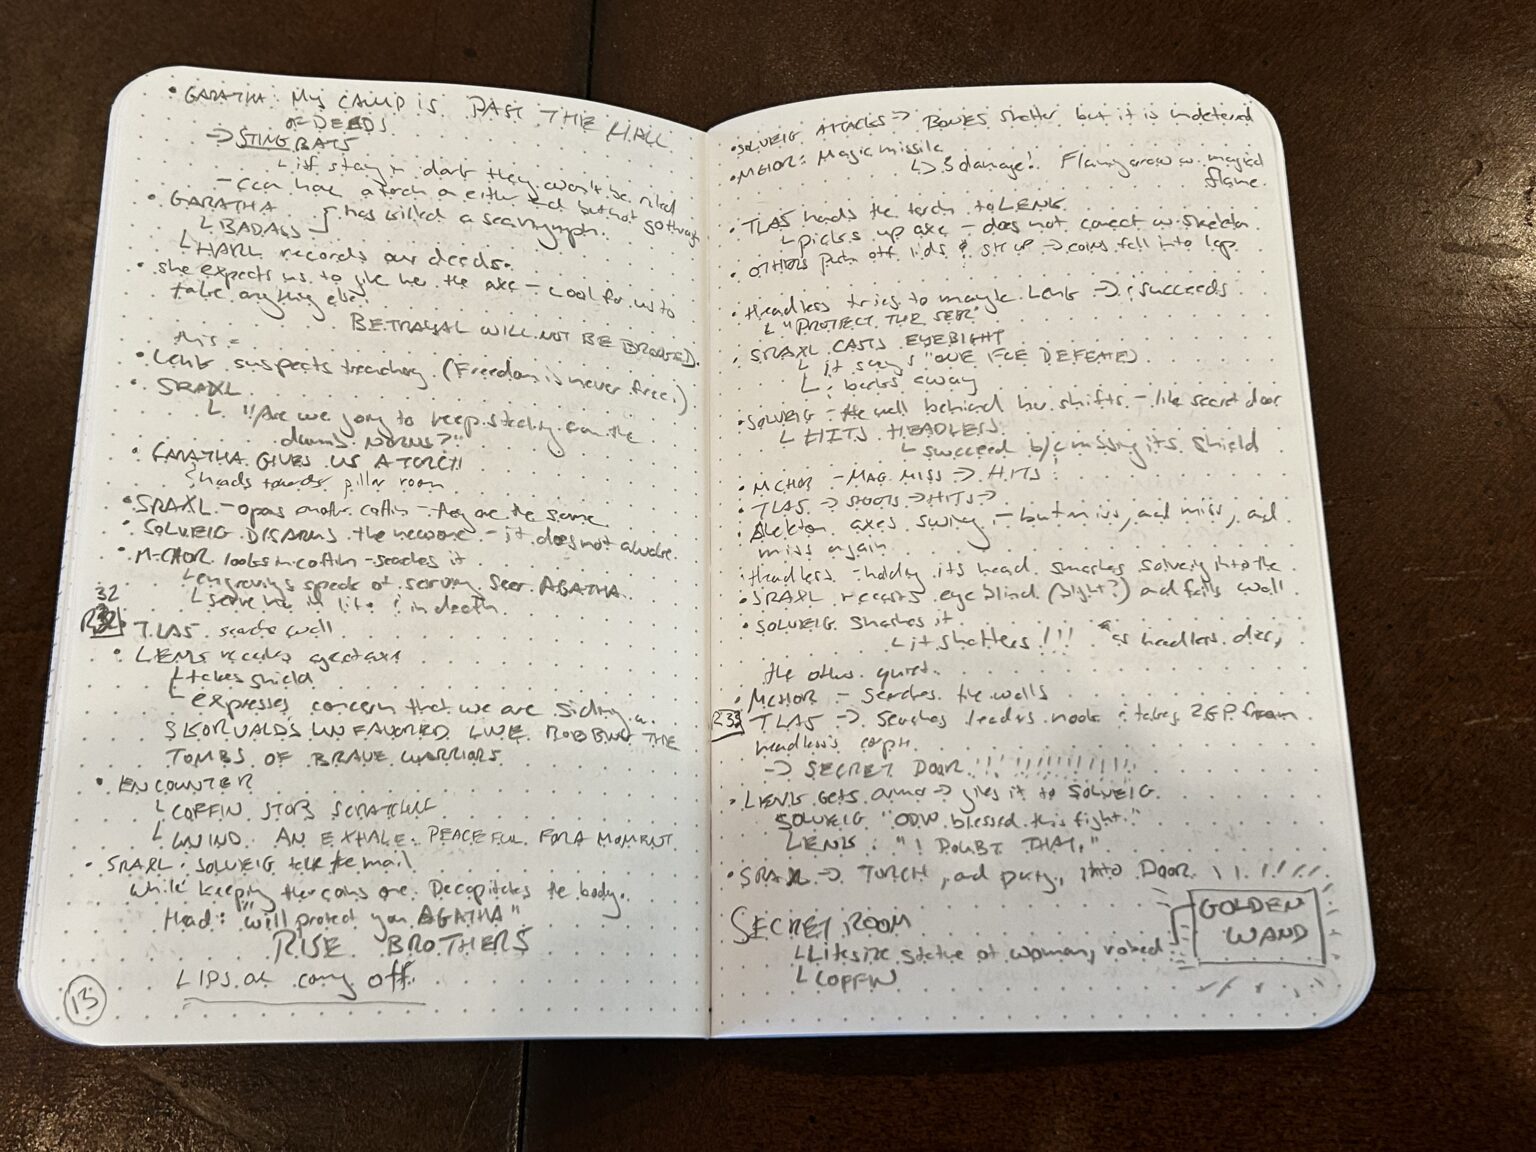 • GARATHA: My CAMP IS PAST THE HALL
OF DEEDS.
→ STINGBATS
└ if stay in dark they won't be riled
- can have a torch on either end but not go through
• GARATHA
└ BADASS } has killed a seanymph.
└ HARL records our deeds.
• she expects us to give her the axe - cool for us to
take anything else.
BETRAYAL WILL NOT BE BROOKED.
this =
• LENG suspects treachery. (Freedom is never free.)
• SRAXL
└ "Are we going to keep stealing from the
damn NORNS?"
• GARATHA GIVES US A TORCH
heads towards pillar room
• SRAXL - opens another coffin - they are the same
• SOLVEIG DISARMS the new one - it does not awake.
• M'CHOR looks in coffin - searches it
└ engravings speak of serving Seer AGATHA.
└ serve her in life & in death.
32
R32 • TLAS searches wall
• LENG receives greataxe
└ takes shield
└ expresses concern that we are siding w.
SKORVALD'S UNFAVORED LIVE ROBBING THE
TOMBS OF BRAVE WARRIORS
• ENCOUNTER
└ COFFIN STOPS SCRATCHING
└ WIND. AN EXHALE. PEACEFUL FOR A MOMENT.
• SRAXL: SOLVEIG take the mail
while keeping the coins on. Decapitates the body.
Head: "will protect you AGATHA"
RISE BROTHERS
└ LIPS are coming off.
13
• SOLVEIG ATTACKS → BONES shatter but it is undeterred
• MCHOR: Magic missile
└> 5 damage! Flaming arrow w. magical
flame.
• TLAS hands the torch to LENG
└ picks up axe - does not connect w. skeleton
• OTHERS push off lids & sit up → coins fall into lap.
• Headless tries to mangle LENG → succeeds
└ "PROTECT THE SEER"
• SRAXL CASTS EYEBIGHT
└ it says "ONE FOE DEFEATED
└ backs away
• SOLVEIG - the wall behind her shifts - like secret door
└ HITS HEADLESS.
└ succeed b/c missing its shield
• MCHOR - MAG. MISS → HITS!
• TLAS → SHOOTS → HITS →
• Skeleton axes swing - but miss, and miss, and
miss again
• Headless - holding its head smashes solveig into the
wall
• SRAXL recasts eye blind (bight?) and fails
• SOLVEIG smashes it
└ it shatters!!! as headless dies,
the others quiet.
• MCHOR - searches the walls
R33 • TLAS → searches leaders nook & takes 2GP from
headless's corpse.
→ SECRET DOOR!!!!!!!!!!!!!
• LENG GETS armor → gives it to SOLVEIG.
SOLVEIG "ODIN blessed this fight."
LENG: "I DOUBT THAT."
• SRAXL → TORCH, and party, into DOOR!!!!!!
SECRET ROOM
└ Lifesize statue of woman, robed
└ COFFIN
GOLDEN
WAND